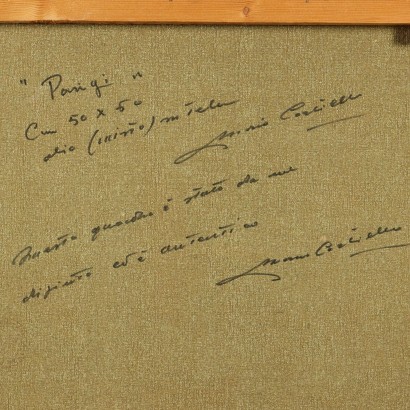 "Parigi"
Cm 50 x 50
olio (misto) su tela
Questo quadro è stato da me
dipinto ed è autentico